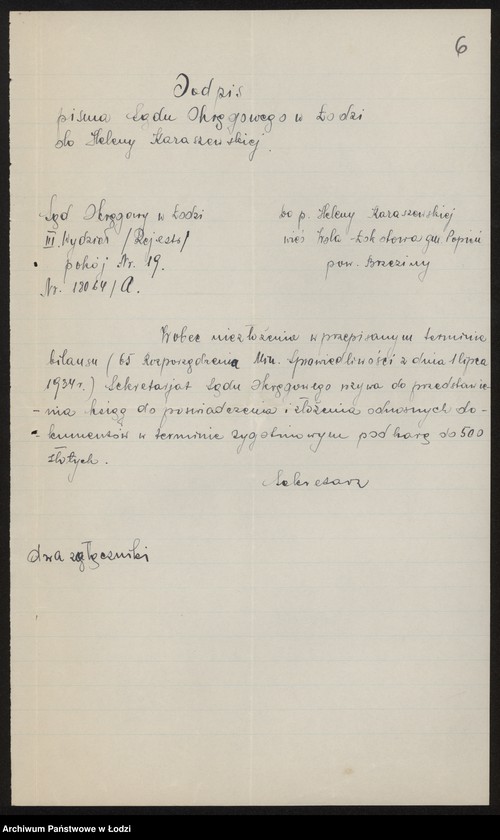 6
Podpis
pisma Sądu Okręgowego w Łodzi
do Heleny Karaszewskiej.
Sąd Okręgowy w Łodzi
III. Wydział /Rejestr/
pokój Nr. 19.
Nr. 12064/A.
Do p. Heleny Karaszewskiej
wieś Wola-Łokotowa gm Popień
pow. Brzeziny
Wobec niezłożenia w przepisanym terminie
bilansu ( 65 Rozporządzenia Min. Sprawiedliwości z dnia 1 lipca
1934 r.) Sekretarjat Sądu Okręgowego wzywa do przedstawie-
-nia ksiąg do poświadczenia i złożenia odnośnych do-
-kumentów w terminie tygodniowym pod karą do 500
złotych.
Sekretarz
dwa załączniki
Archiwum Państwowe w Łodzi